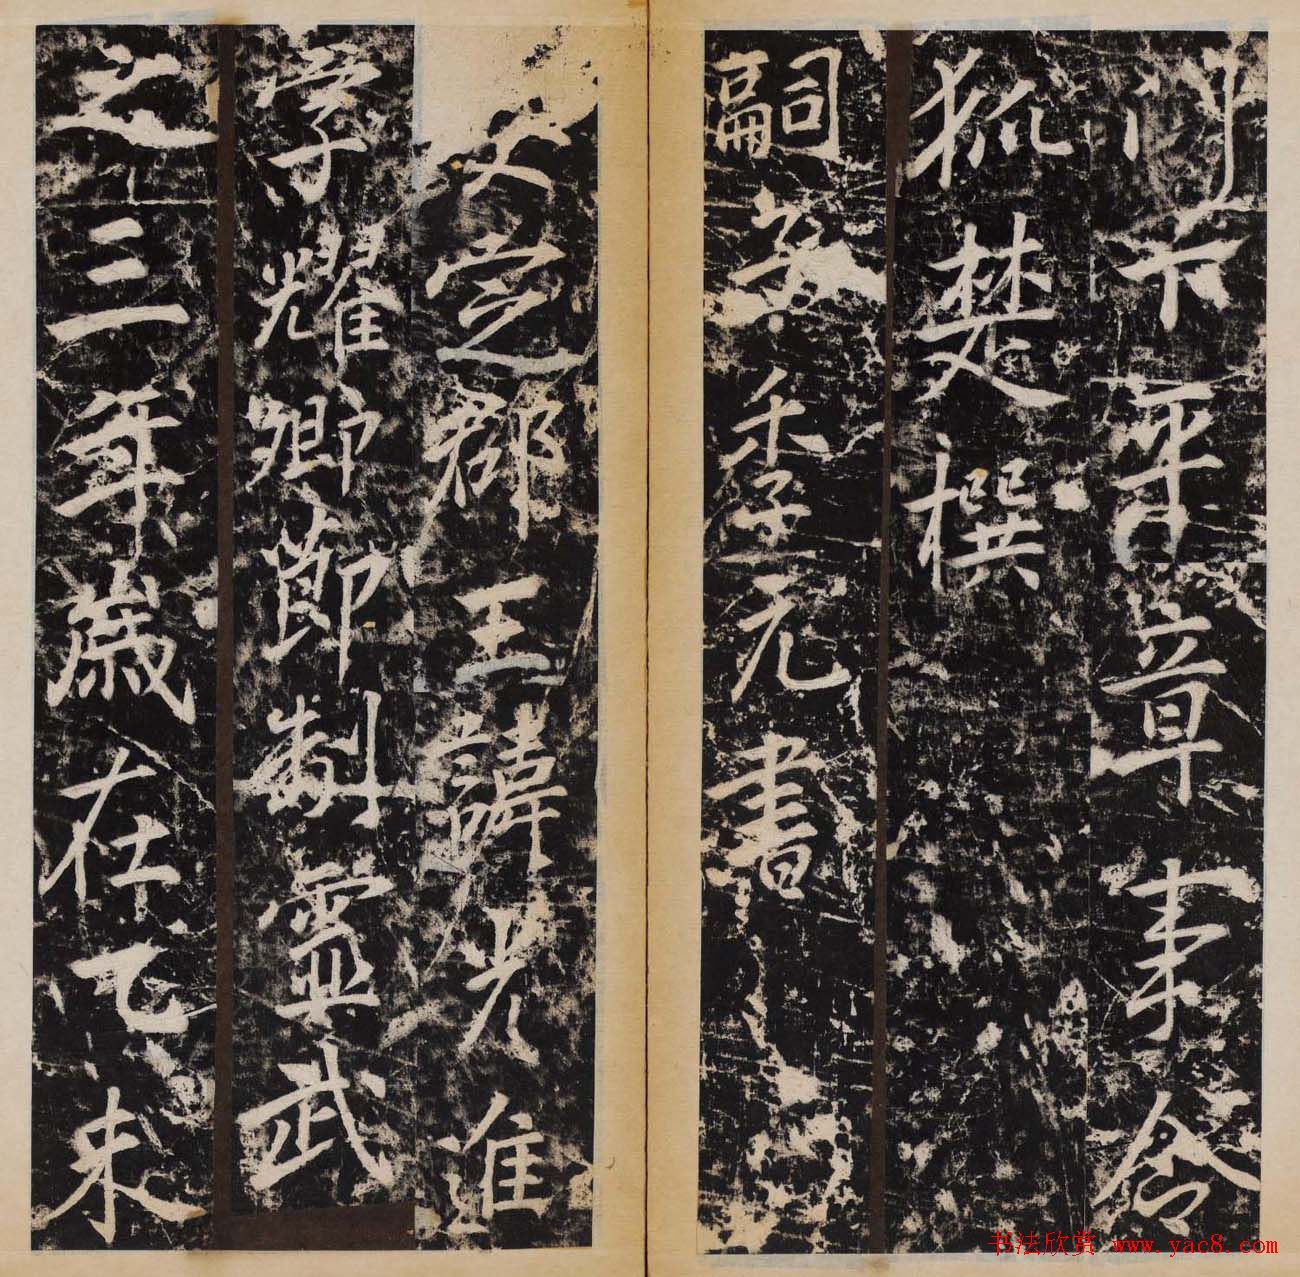 門下平章事令
狐楚撰
嗣子季元書
安定郡王諱光進
字耀卿節制靈武
之三年歲在乙未
书法欣赏 www.yac8.com